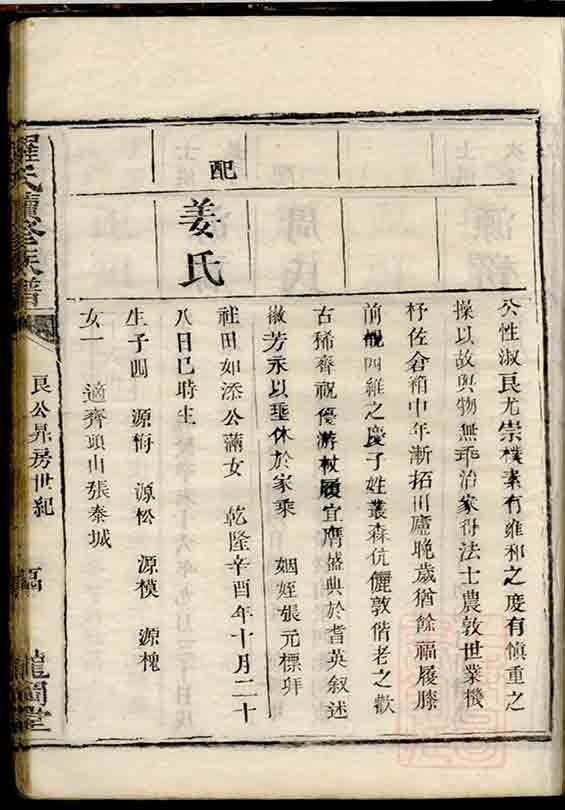 公性淑良尤崇樸素有雍和之度有慎重之
操以故與物無乖治家得法士農敦世業機
杼佐倉箱中年漸拓田廬晚歲猶餘福履膝
前覩四維之慶子姓叢森伉儷敦偕老之歡
古稀齊祝優游杖履宜膺盛典於耆英叙述
徽芳永以垂休於家乘 姻姪張元標拜
配
姜氏
社田如添公滿女 乾隆辛酉年十月二十
八日巳時生
生子四 源梅 源松 源模 源槐
女一 適齊頭山張泰城
羅氏續修族譜
良公昇房世紀